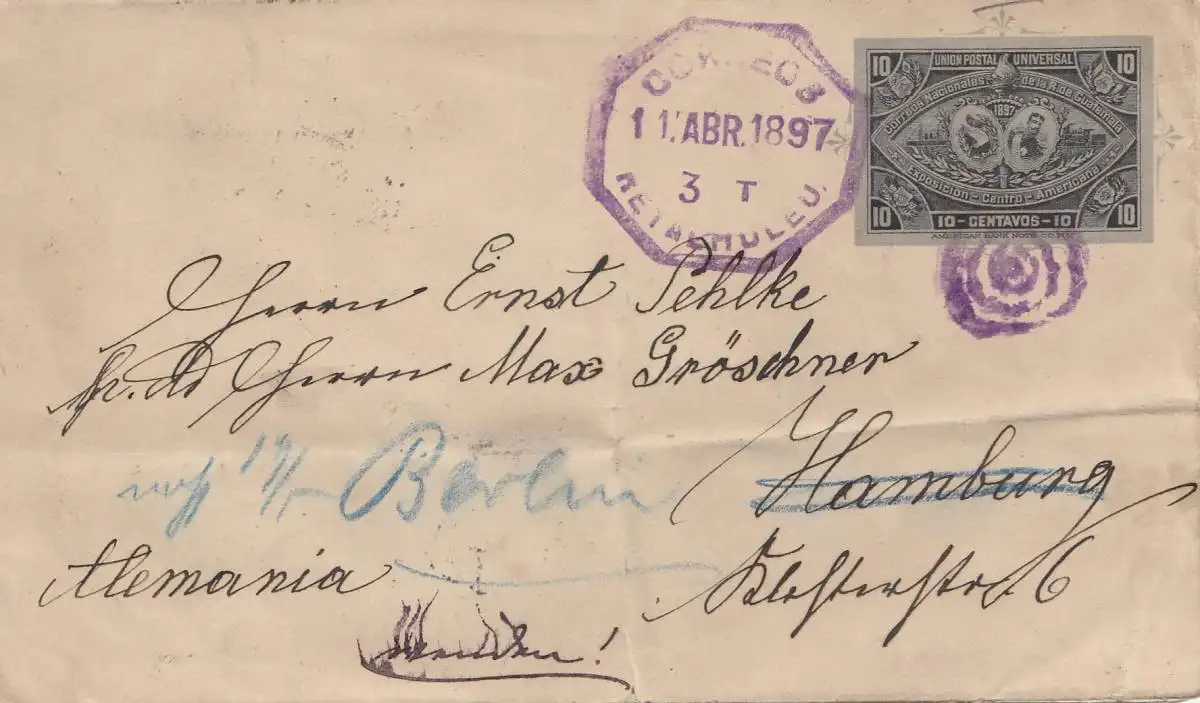 CORREOS
11 ABR. 1897
3 T
RETALHULEU.
10 UNION POSTAL UNIVERSAL 10
Correos Nacionales de la R. de Guatemala
1897
Exposicion-Centro-Americana
10 10-CENTAVOS-10 10
AMERICAN BANK NOTE CO. N.Y.
Herrn Ernst Pehlke
Herrn Max Gröschner
Berlin
Hamburg
Alemania
Klosterstr. 6
wenden!